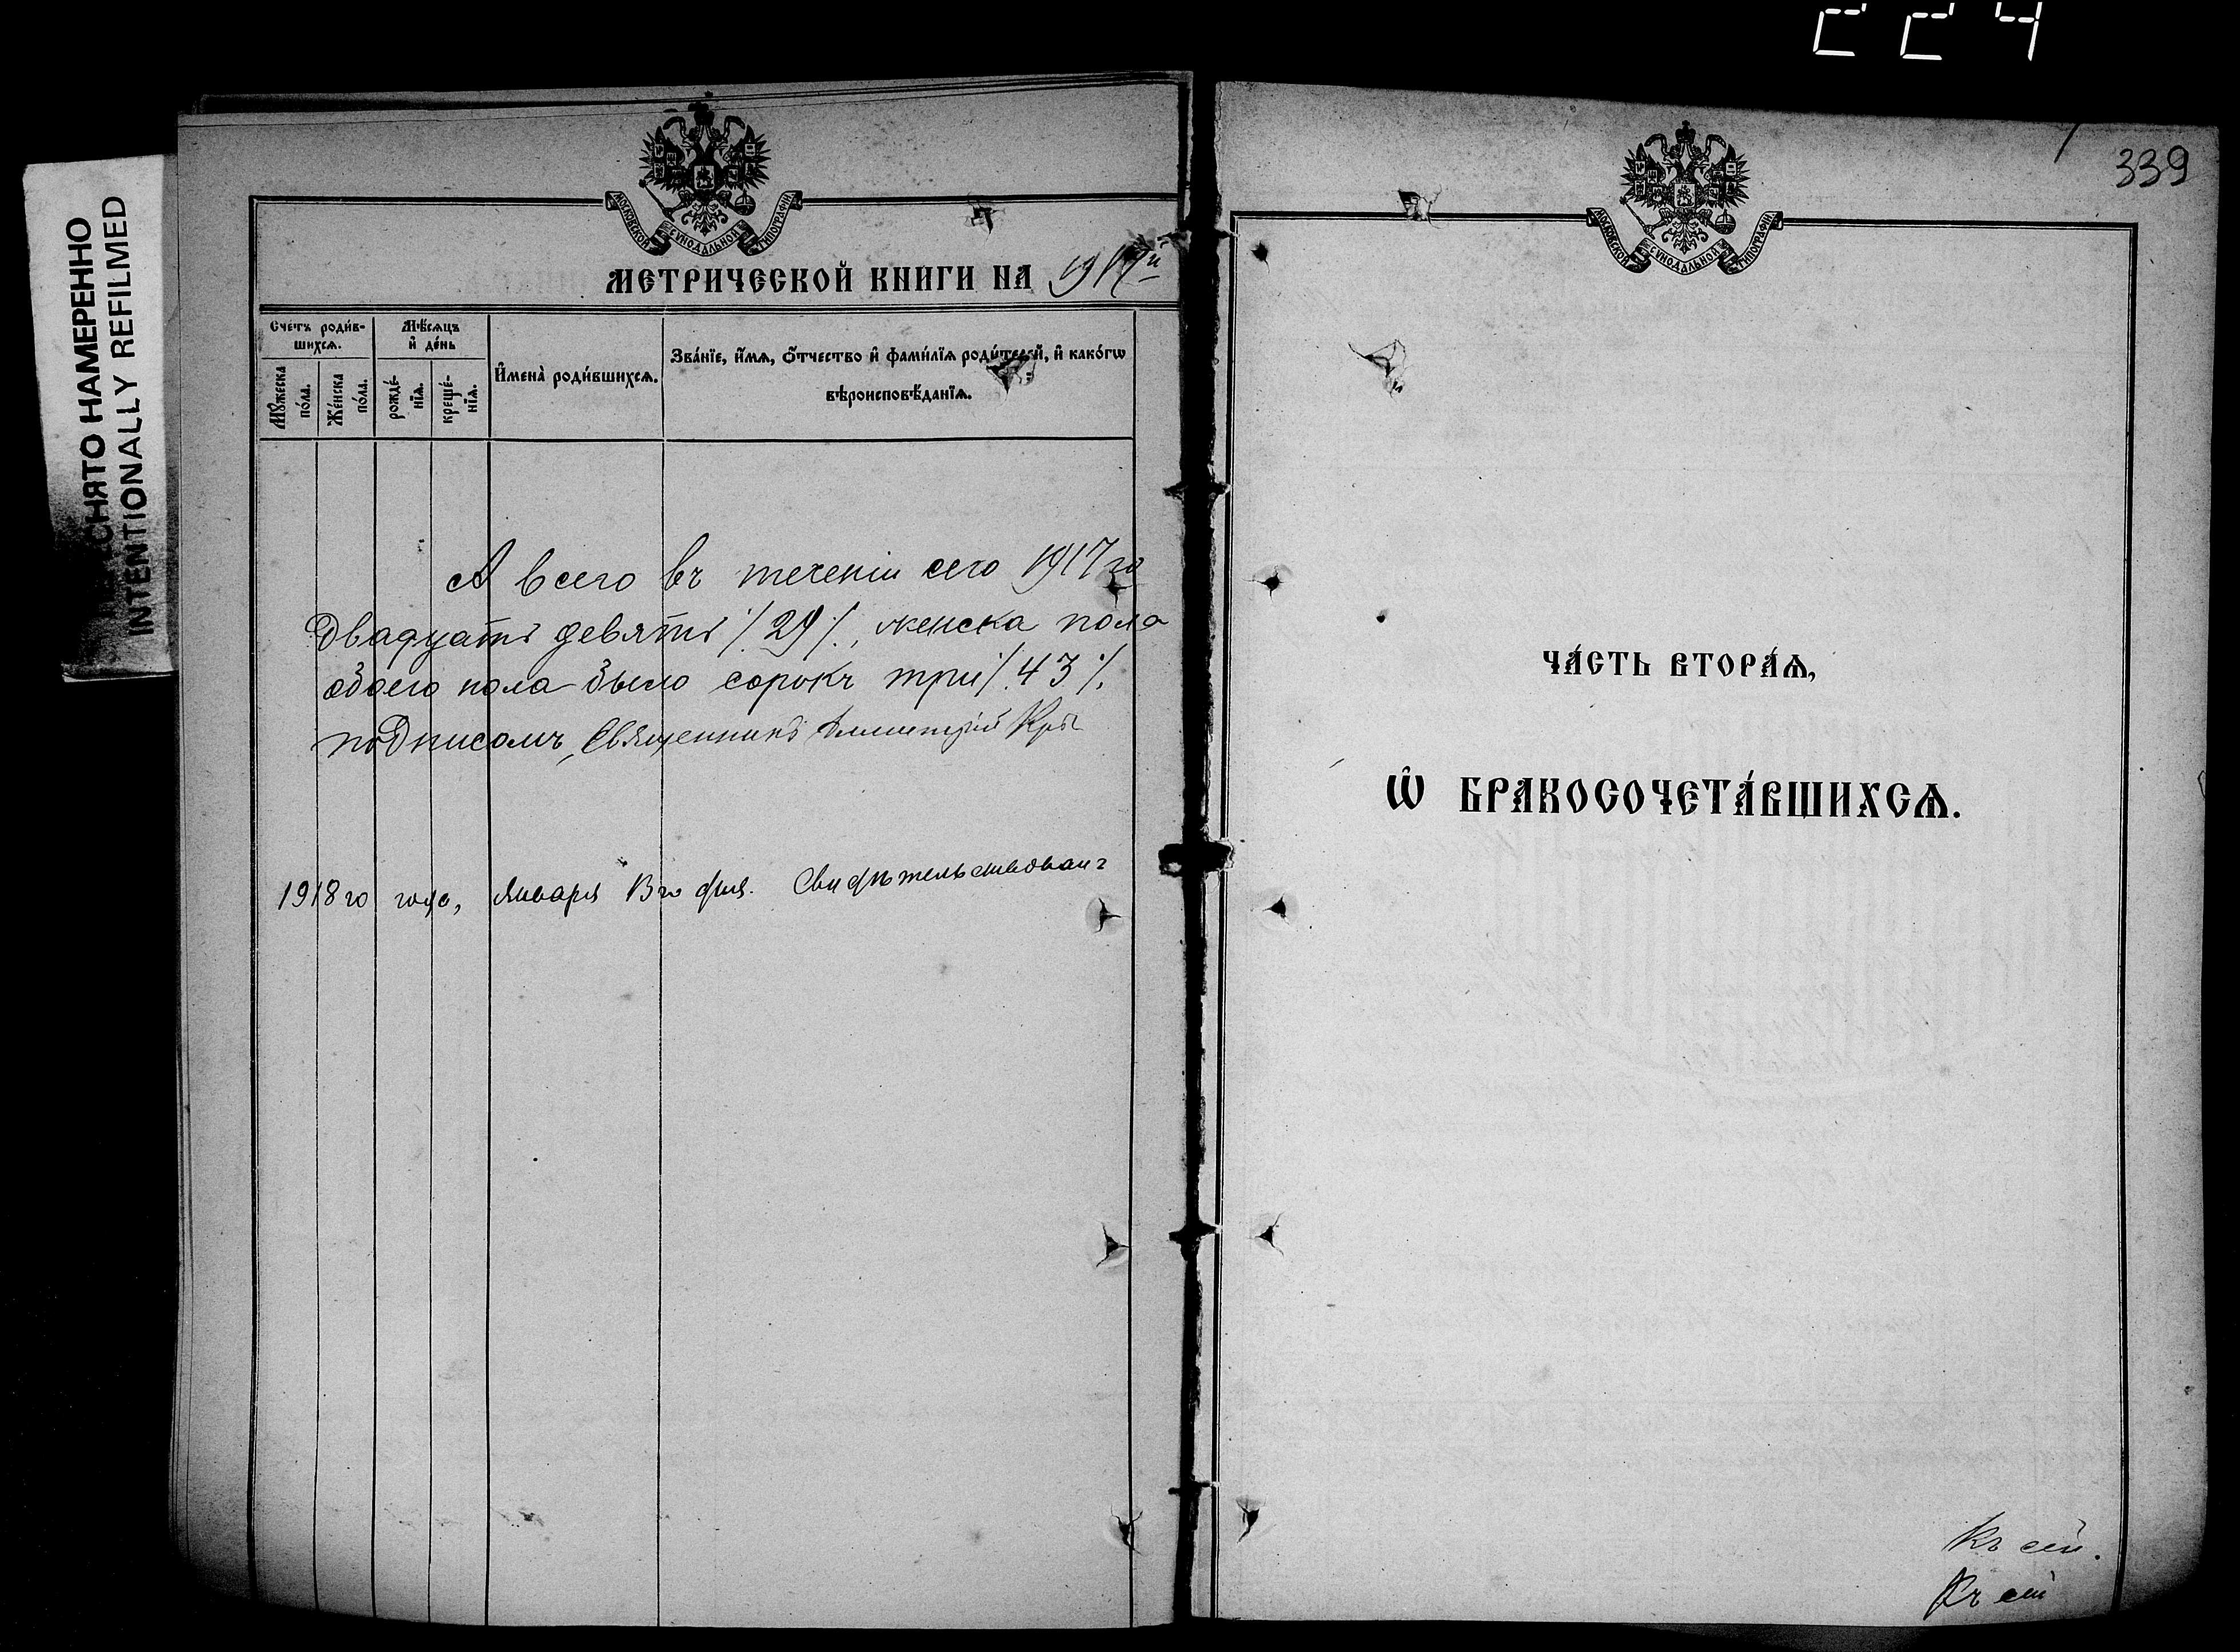 224
ПЕРЕСНЯТО НАМЕРЕННО
INTENTIONALLY REFILMED
МОСКОВСКОЙ СѴНОДАЛЬНОЙ ТИПОГРАФІИ
МЕТРИЧЕСКОЙ КНИГИ НА 1917й
Сче́тъ роди́в-
шихсѧ.
Мꙋ́жеска
по́ла.
Же́нска
по́ла.
Мѣ́сѧцъ
и҆ де́нь
рожде́-
нїѧ.
креще́-
нїѧ.
И҆мена̀ роди́вшихсѧ.
Зва́нїе, и҆́мѧ, ѻ҆́тчество и҆ фами́лїѧ роди́телей, и҆ како́гѡ
вѣроисповѣ́данїѧ.
А всего въ теченіи сего 1917 го
двадцать девять /.29./, женска пола
обоего пола было сорокъ три /.43./.
подписомъ, Священникъ Димитрій
1918 го года, Января 13 го дня. Свидѣтельствованъ
339
МОСКОВСКОЙ СѴНОДАЛЬНОЙ ТИПОГРАФІИ
ЧА́СТЬ ВТОРА́Ѧ,
Ѡ҆ БРАКОСОЧЕТА́ВШИХСѦ.
Къ сей.
Къ сей